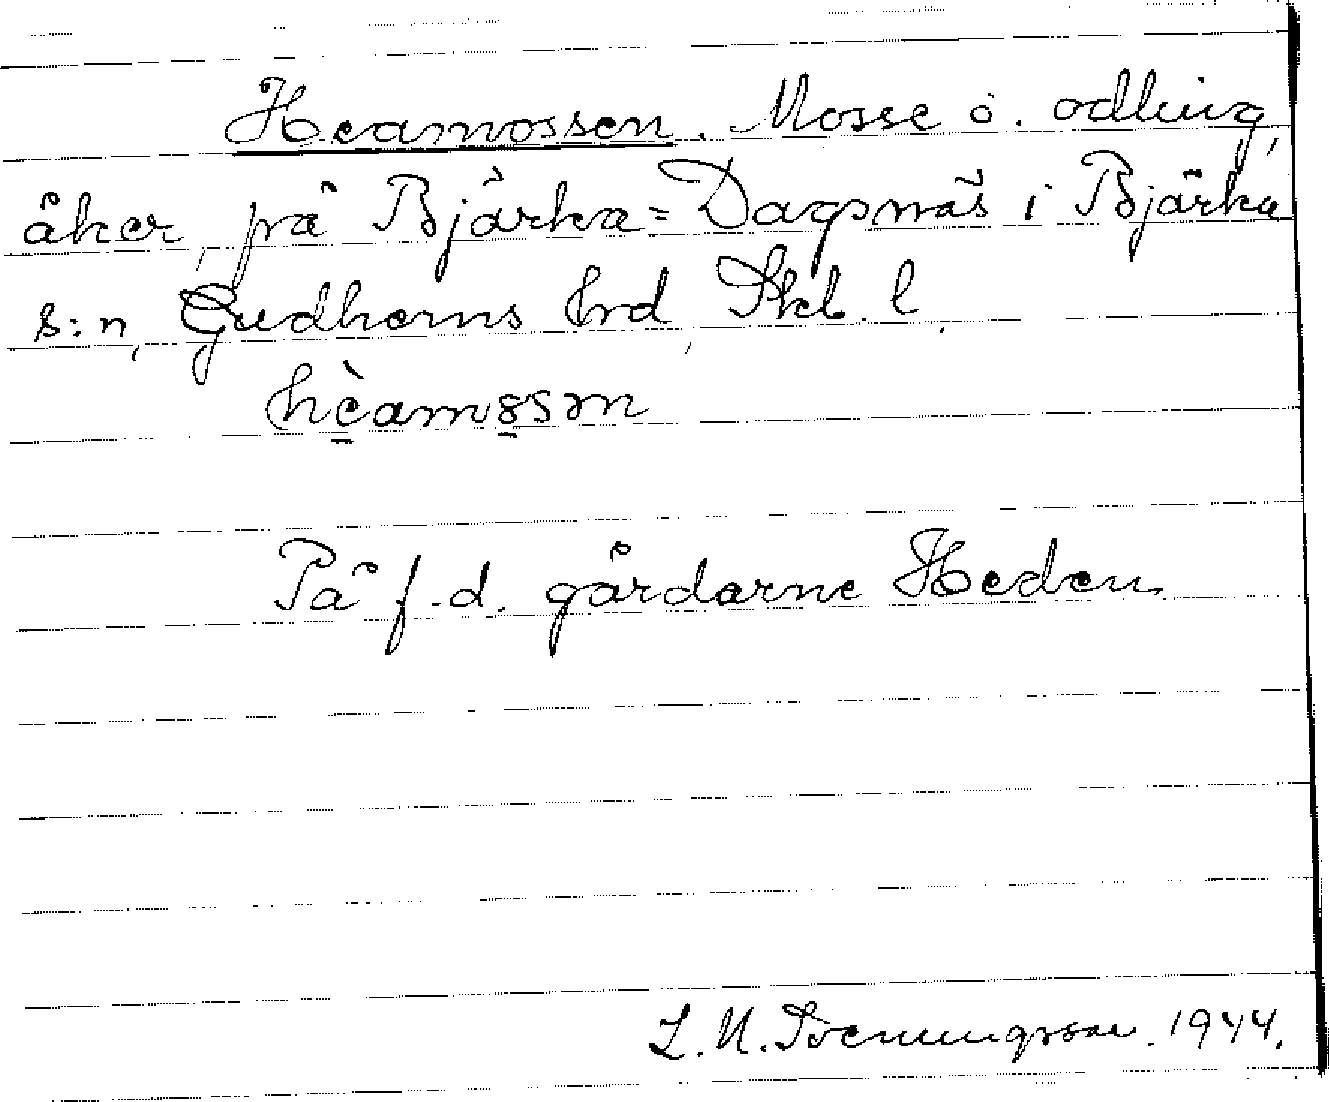 Heamossen. Mosse o. odling,
åker, på Bjärka-Dagsnäs i Bjärka
s:n, Gudhems hrd, Skb. l.
hèamȣsən
På f.d. gårdarne Heden.
L. N. Svenungsson. 1944.